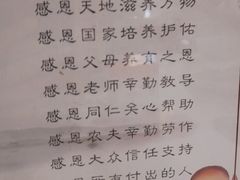 感恩天地滋养万物
感恩国家培养护佑
感恩父母养育之恩
感恩老师辛勤教导
感恩同仁关心帮助
感恩农夫辛勤劳作
感恩大众信任支持
感恩所有付出的人